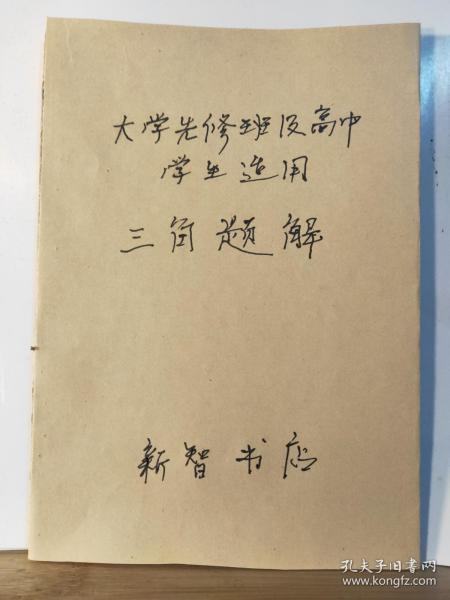 大学先修班及高中
学生适用
三角题解
新智书店
孔夫子旧书网
www.kongfz.com